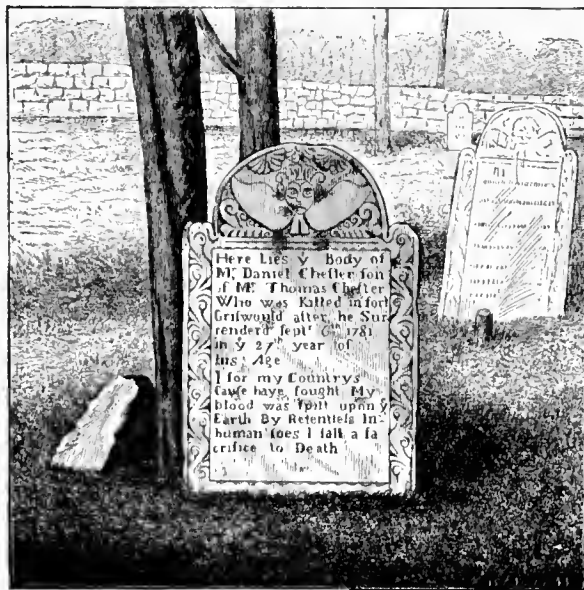 Here Lies ẏ Body of
Mr Daniel Cheſter ſon
of Mr Thomas Cheſter
Who was Killed in fort
Griſwould after he Sur
renderd ſeptr 6th 1781
in ẏ 27th year of
his Age
I for my Countrys
Cauſe have fought My
blood was ſpilt upon ẏ
Earth By Retentleſs In-
human foes I fall a ſa
crifice to Death